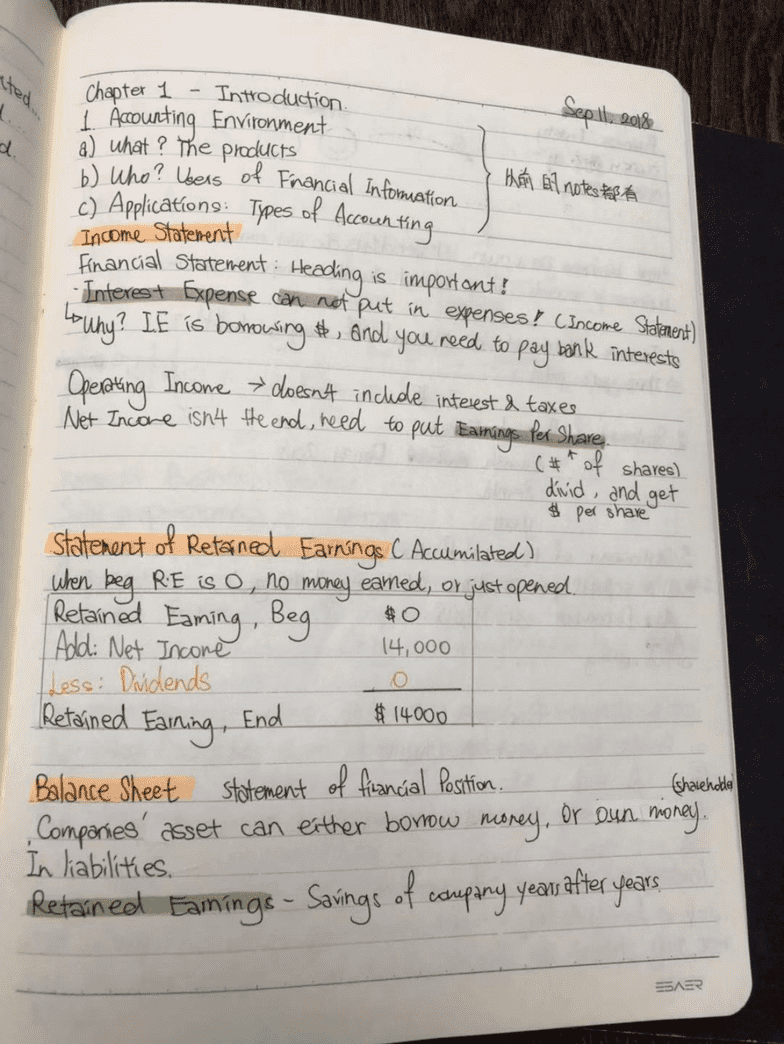 tted...
d.
Chapter 1 - Introduction.
Sep 11. 2018
1. Accounting Environment
a) What? The products
b) Who? Users of Financial Information
c) Applications: Types of Accounting
从前的notes都有
Income Statement
Financial Statement: Heading is important!
· Interest Expense can not put in expenses! (Income Statement)
↳ Why? I.E is borrowing $, and you need to pay bank interests
Operating Income → doesn't include interest & taxes
Net Income isn't the end, need to put Earnings Per Share.
(# of shares)
divid, and get
$ per share
Statement of Retained Earnings (Accumilated)
when beg R.E is 0, no money earned, or just opened.
Retained Earning, Beg $0
Add: Net Income 14,000
Less: Dividends 0
Retained Earning, End $14000
Balance Sheet statement of financial Position.
(shareholder
Companies' asset can either borrow money, or own money.
In liabilities.
Retained Earnings - Savings of company years after years.
ESAER